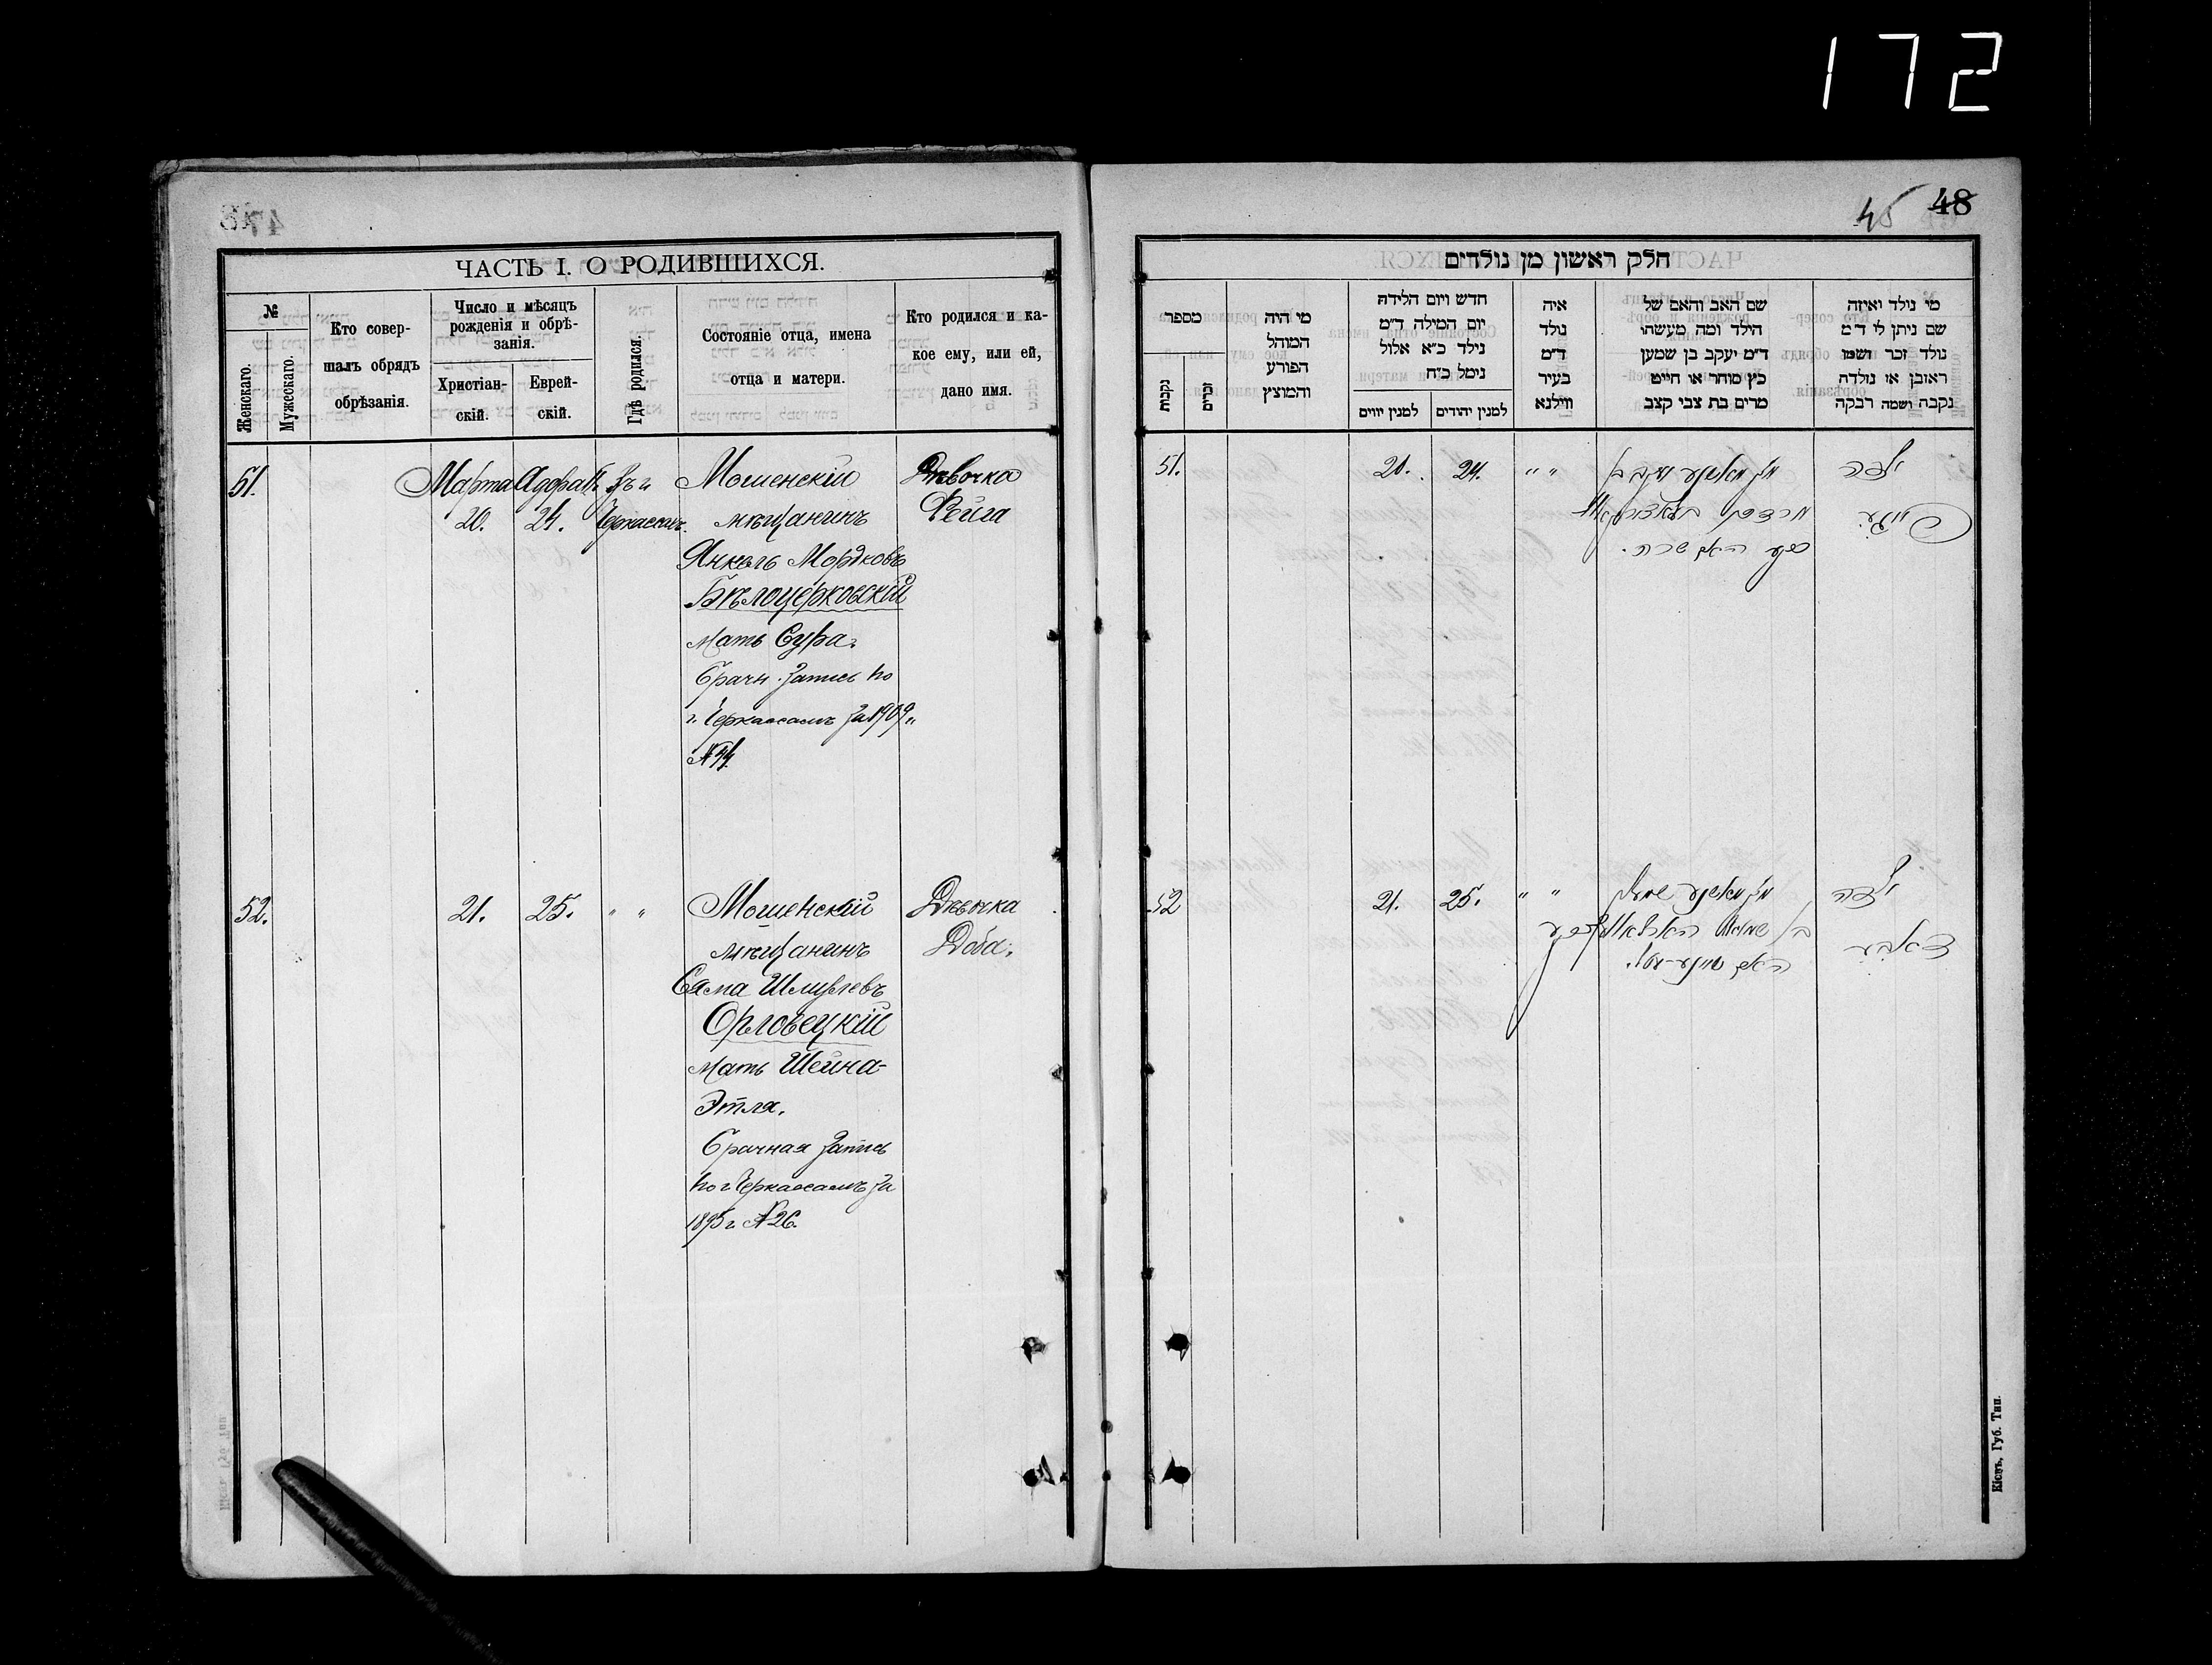 172
ЧАСТЬ I. О РОДИВШИХСЯ.
№
Женскаго.
Мужескаго.
Кто совер-
шалъ обрядъ
обрѣзанія.
Число и мѣсяцъ
рожденія и обрѣ-
занія.
Христіан-
скій.
Еврей-
скій.
Гдѣ родился.
Состояніе отца, имена
отца и матери.
Кто родился и ка-
кое ему, или ей,
дано имя.
51.
Марта
20.
24.
Мошенскій
мѣщанинъ
Янкель Мордковъ
Бѣлоцерковскій
Мать Сура.
Брачн. запись по
г. Черкассамъ за 1909 г.
Дѣвочка
Фейга
52.
21.
25.
" "
Мошенскій
мѣщанинъ
Сяма Шмулевъ
Орловецкій
Мать Шейна-
Этля.
Брачная запись
по г. Черкассамъ за
1895 г. № 26.
Дѣвочка
Доба.
45 48
חלק ראשון מן נולדים
מי נולד ואיזה
שם ניתן לי ד״מ
נולד זכר ושמו
ראובן או נולדה
נקבה ושמה רבקה
שם האב והאם של
הילד ומה מעשהו
ד״מ יעקב בן שמעון
כץ סוחר או חייט
מרים בת צבי קצב
איה
נולד
ד״מ
בעיר
ווילנא
חדש ויום הלידה
יום המילה ד״מ
נילד כ״א אלול
נימל כ״ח
למנין יהודים
למנין יווים
מי היה
המוהל
הפורע
והמוצץ
מספר
זכרים
נקבות
51.
20.
24.
" "
ילדה
פייגע
האם שרה.
52
21.
25.
" "
ילדה
דאבע
האם שיינע-עטל.
Кіевъ, Губ. Тип.